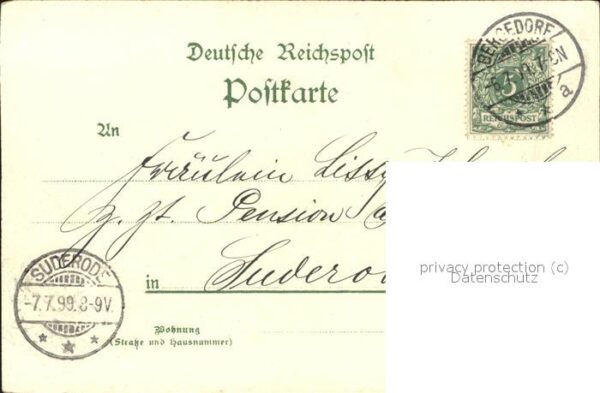 Deutsche Reichspost
Postkarte
BERGEDORF
a
5
REICHSPOST
An
Fräulein Lissy
z. Zt. Pension
in Suderode
SUDERODE
-7.7.99.8-9V.
Wohnung
(Straße und Hausnummer)
privacy protection (c)
Datenschutz